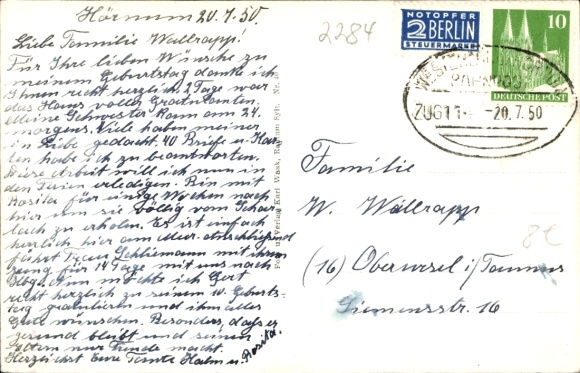 Hörnum 20.7.50.
Liebe Familie Wallrapp!
Für Ihre lieben Wünsche zu
meinem Geburtstag danke ich
Ihnen recht herzlich. 2 Tage war
das Haus voller Gratulanten.
Meine Schwester kam am 24.
morgens. Viele haben meiner
in Liebe gedacht. 40 Briefe u. Kar-
ten habe ich zu beantworten.
Diese Arbeit will ich nun in
den Ferien erledigen. Bin mit
Rosita für einige Wochen nach
hier um sie völlig vom Schar-
lach zu erholen. Es ist einfach
herrlich hier am Meer. Anschließend
fährt Frau Schliemann mit ihrem
Jung für 14 Tage mit uns nach
Nun möchte ich Gert
recht herzlich zu seinem 10. Geburts-
tag gratulieren und ihm alles
Gute wünschen. Besonders, dass er
gesund bleibt und seinen
Eltern nur Freude macht.
Herzlichst Eure Tante Halm u. Rosita.
Verlag Karl Wask, Sylt, Nr.
2284
NOTOPFER
2 BERLIN
STEUERMARKE
10
DEUTSCHE POST
BAHNPOST
ZUG 11
20.7.50
Familie
W. Wallrapp
(16) Oberursel i/Taunus
Siemensstr. 16
8€